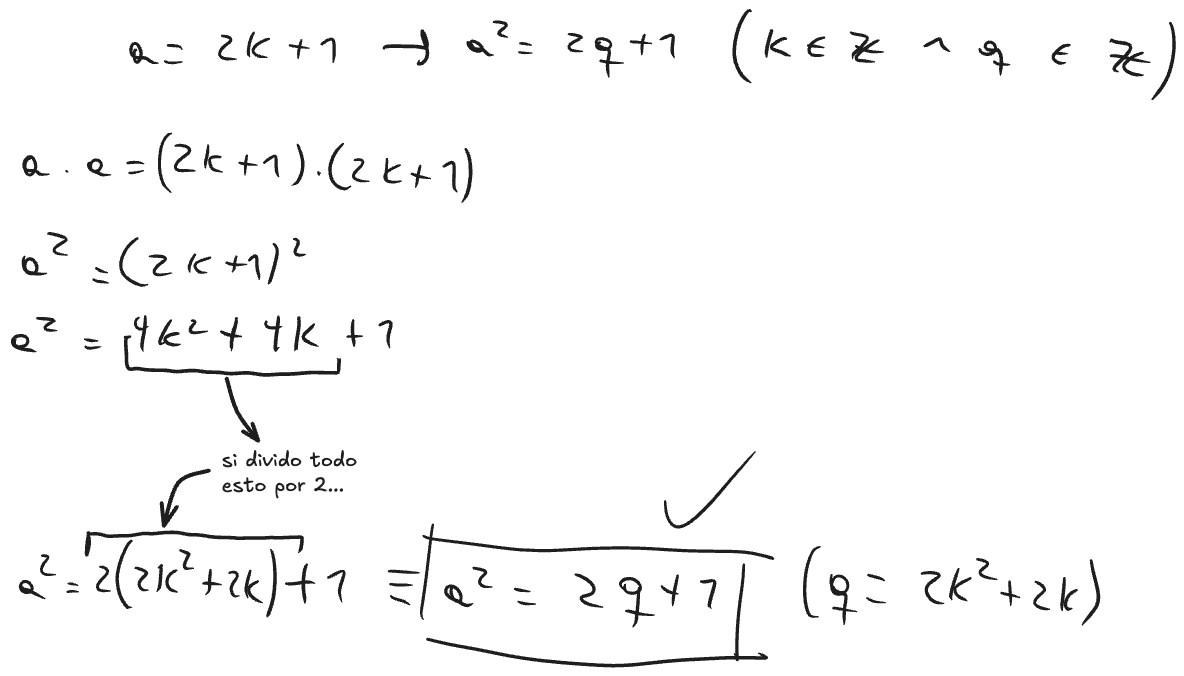 a = 2k + 1 → a² = 2q + 1 (k ∈ ℤ ^ q ∈ ℤ)
a . a = (2k + 1) . (2k + 1)
a² = (2k + 1)²
a² = 4k² + 4k + 1
si divido todo
esto por 2...
a² = 2(2k² + 2k) + 1 ≡ a² = 2q + 1 (q = 2k² + 2k)